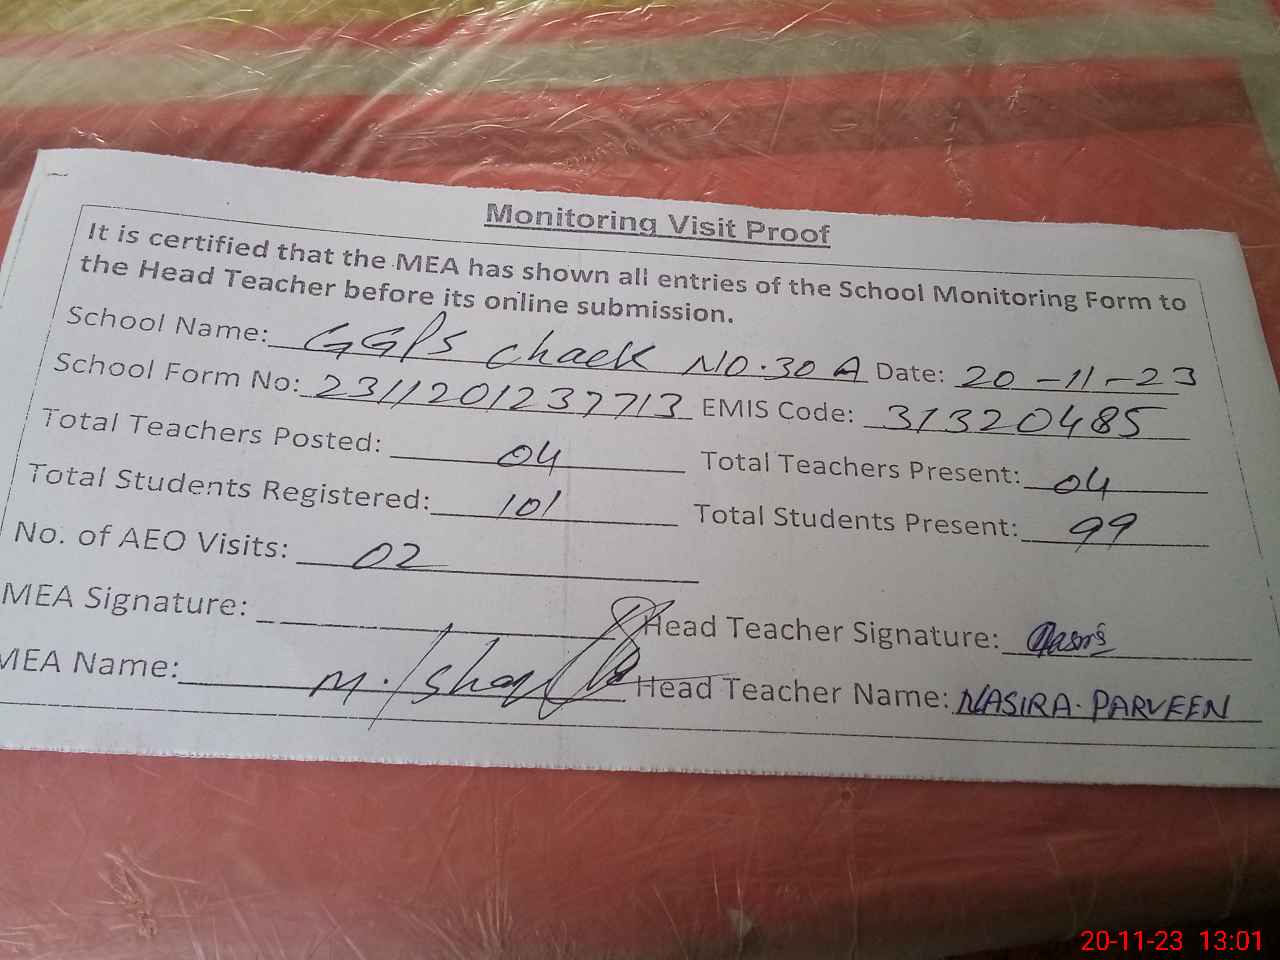 Monitoring Visit Proof
It is certified that the MEA has shown all entries of the School Monitoring Form to
the Head Teacher before its online submission.
School Name: GGPS chack NO.30 A Date: 20-11-23
School Form No: 2311201237713 EMIS Code: 31320485
Total Teachers Posted: 04 Total Teachers Present: 04
Total Students Registered: 101 Total Students Present: 99
No. of AEO Visits: 02
MEA Signature: Head Teacher Signature:
MEA Name: M. Head Teacher Name: NASIRA. PARVEEN
20-11-23 13:01